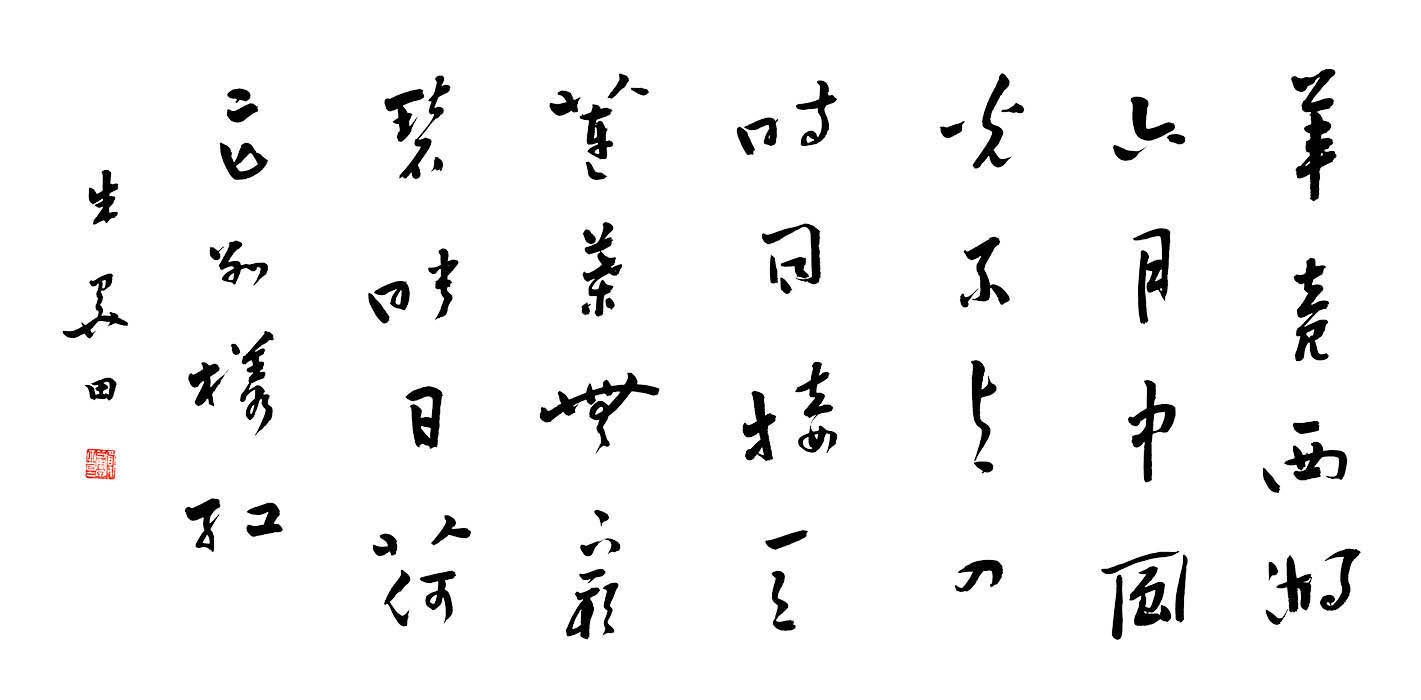 畢竟西湖
六月中風
光不與四
時同接天
蓮葉無窮
碧映日荷
花別樣紅
朱田